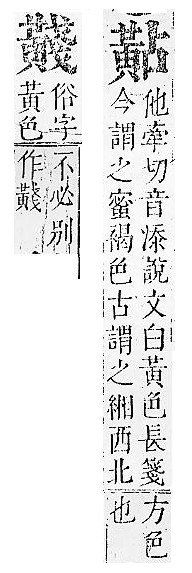 黇
他牽切音添說文白黃色長箋
今謂之蜜褐色古謂之緗西北
方色
也
俗字
黃色
不必別
作